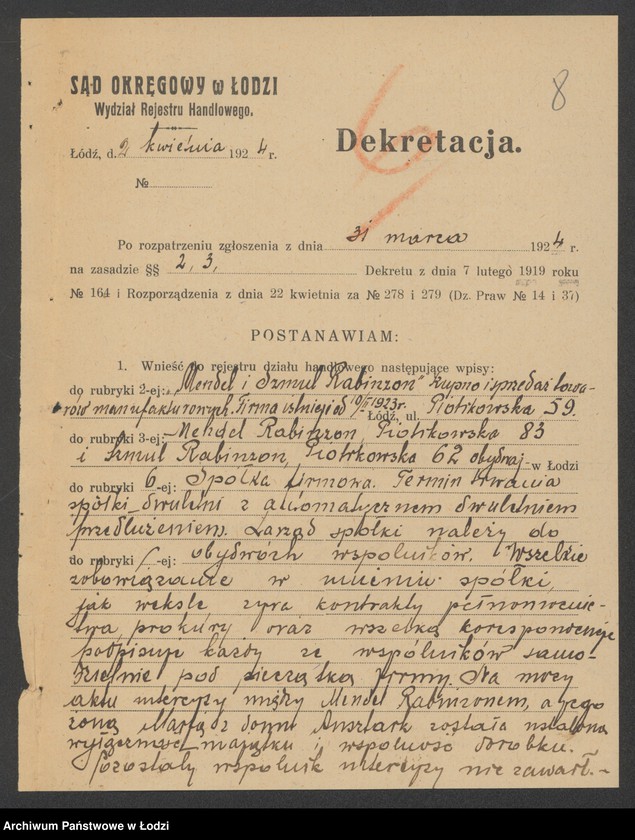 8
SĄD OKRĘGOWY w ŁODZI
Wydział Rejestru Handlowego.
Łódź, d. 2 kwietnia 1924 r.
Dekretacja.
6
№
Po rozpatrzeniu zgłoszenia z dnia 31 marca 1924 r.
na zasadzie §§ 2, 3, Dekretu z dnia 7 lutego 1919 roku
№ 164 i Rozporządzenia z dnia 22 kwietnia za № 278 i 279 (Dz. Praw № 14 i 37)
POSTANAWIAM:
1. Wnieść do rejestru działu handlowego następujące wpisy:
do rubryki 2-ej: „Mendel i Szmul Rabinzon" kupno i sprzedaż towa-
rów manufakturowych. Firma istnieje od 1923 r. Łódź, ul. Piotrkowska 59.
do rubryki 3-ej: Mendel Rabinzon, Piotrkowska 83
i Szmul Rabinzon, Piotrkowska 62 obydwaj w Łodzi
do rubryki 6-ej: Spółka firmowa. Termin trwania
spółki dwuletni z automatycznem dwuletniem
przedłużeniem. Zarząd spółki należy do
do rubryki -ej: obydwóch wspólników. Wszelkie
zobowiązanie w imieniu spółki,
jak weksle, żyra kontrakty pełnomocnic-
twa, prokury oraz wszelką korespondencję
podpisuje każdy ze wspólników samo-
dzielnie pod pieczątką firmy. Na mocy
aktu intercyzy między Mendel Rabinzonem, a jego
żoną Marją z domu została ustalona
wyłączność majątku i wspólność dorobku.
Pozostały wspólnik intercyzy nie zawarł.-
Archiwum Państwowe w Łodzi